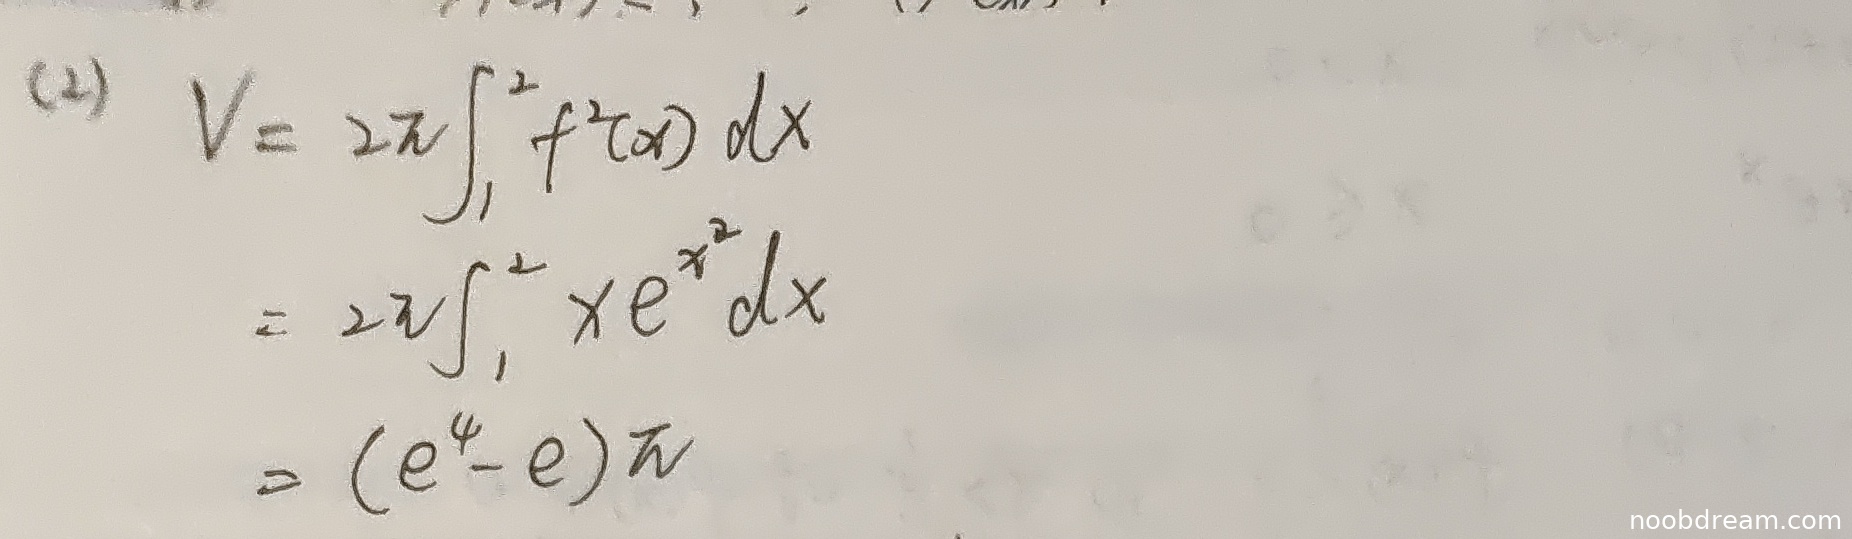 (2) V = 2π∫₁² f²(x) dx
= 2π∫₁² x e^{x²} dx
= (e⁴ - e) π
noobdream.com